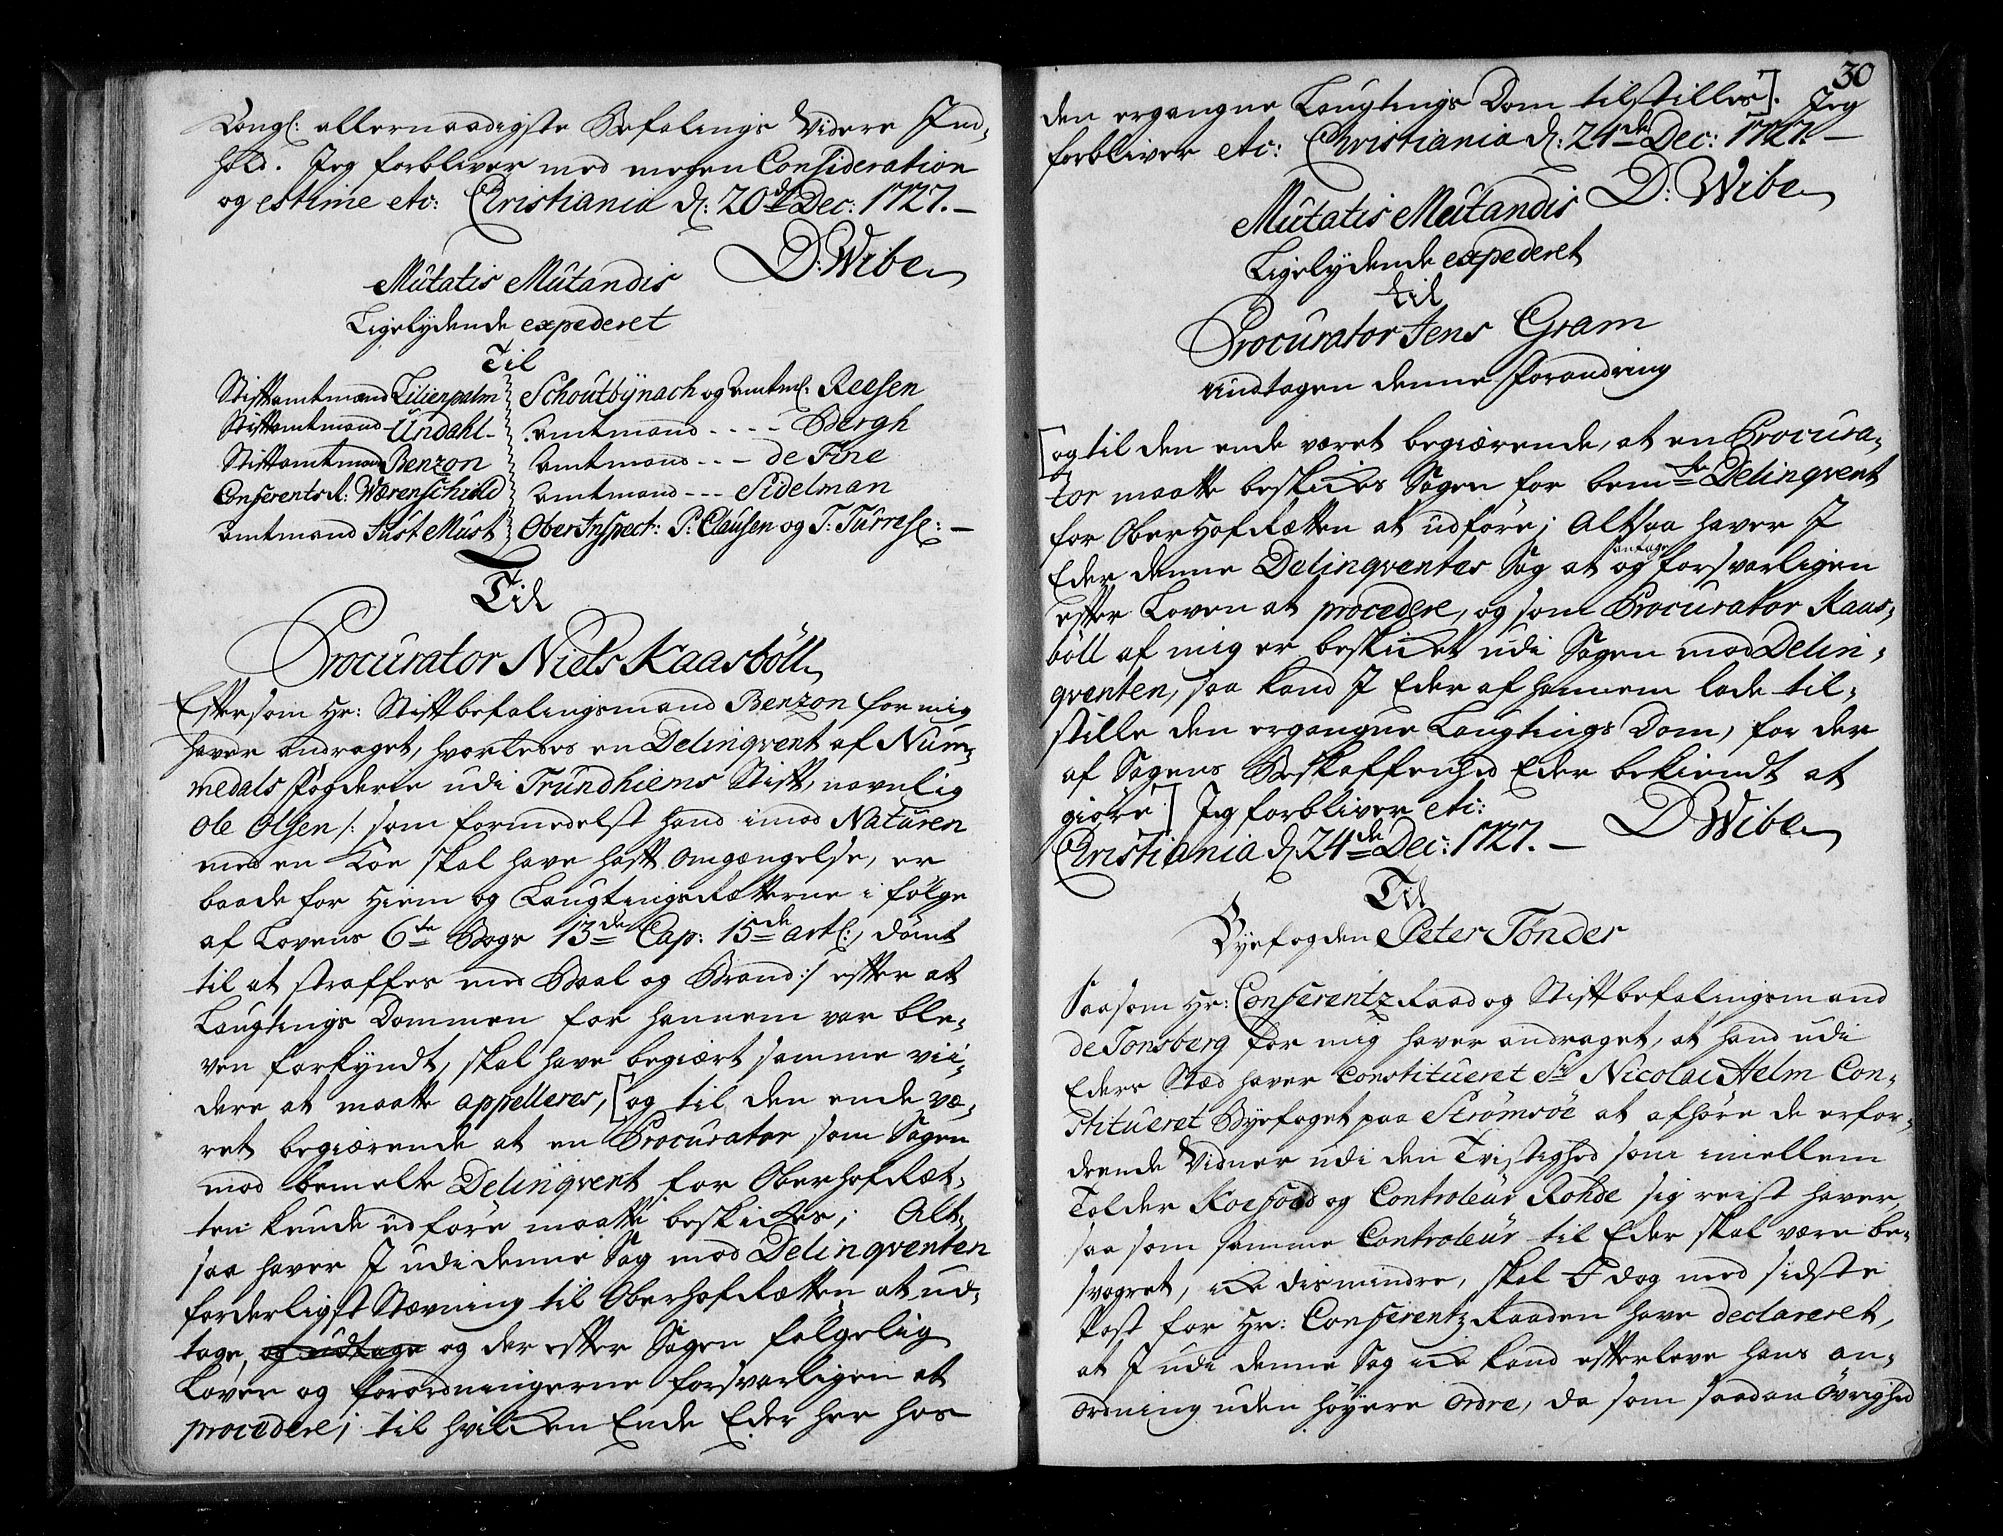 Kongl: allernaadigste Befalings Videre Ind-
hold. Jeg forbliver med megen Consideration
og estime etc: Christiania d: 20de Dec: 1727. —
D: Wibe
Mutatis Mutandis
Ligelydende expederet
Til
Stiftamtmand Lilienpalm Schoutbynach og Amtmd: Reesen
Stiftamtmand Undahl Amtmand - - - - Bergh
Stiftamtmand Benzon Amtmand - - - de Fine
Conferents R: Wærenschiold Amtmand - - - Sidelman
Amtmand Just Must Ober Inspect: P: Clausen og T: Turres: —
Til
Procurator Niels Kaasböll
Eftersom Hr: Stiftbefalingsmand Benzon for mig
haver andraget, hvorledes en Delinqvent af Num-
medals Fogderie udi Trundhiems Stift, navnlig
Ole Olsen /: som formedelst hand imod Naturen
med en Koe skal have haft Omgængelse, er
baade for Hiem og Laugtings Retterne i følge
af Lovens 6te Bogs 13de Cap: 15de artl:, dömt
til at straffes med Baal og Brand :/ efter at
Laugtings Dommen for hannem var ble-
ven forkyndt, skal have begiært samme vii-
dere at maatte appelleres, [og til den ende væ-
ret begiærende at en Procurator som Sagen
mod bemelte Delinqvent for Oberhofræt-
ten kunde udföre maatte beskickes; Alt-
saa haver I udi denne Sag mod Delinqventen
forderligst Stævning til Oberhofretten at ud-
tage, og udtage og der efter Sagen følgelig
Loven og Forordningerne forsvarligen at
procedere; til hvilcken Ende Eder her hos
30
den ergangne Laugtings Dom tilstilles]. Jeg
forbliver etc: Christiania d: 24de Dec: 1727. —
D: Wibe
Mutatis Mutandis
Ligelydende expederet
til
Procurator Jens Gram
undtagen denne Forandring
[og til den ende været begiærende, at en Procura-
tor maatte beskickes Sagen for bemte Delinqvent
for Oberhofrætten at udföre; Altsaa haver I
Eder denne Delinqventes Sag at antage og forsvarligen
efter Loven at procedere, og som Procurator Kaas-
böll af mig er beskicket udi Sagen mod Delin-
qventen, saa kand I Eder af hannem lade til-
stille den ergangne Laugtings Dom, for der
af Sagens Beskaffenhed Eder bekiendt at
giöre] Jeg forbliver etc:
Christiania d: 24de Dec: 1727. —
D Wibe
Til
Byefogden Peter Tönder
Saasom Hr: Conferentz Raad og Stiftbefalingsmand
de Tonsberg for mig haver andraget, at hand udi
Eders Stæd haver Constitueret Sr Nicolai Helm Con-
stitueret Byefoget paa Strömsöe at afhöre de erfor-
drende Vidner udi den Tvistighed som imellem
Tolder Koefoed og Controleur Rohde sig reist haver,
saasom samme Controleur til Eder skal være be-
svogret, icke dismindre, skal I dog med sidste
Post for Hr: Conferentz Raaden have declareret,
at I udi denne Sag icke kand efterleve hans an-
ordning uden höyere ordre, da som saadan Övrighed